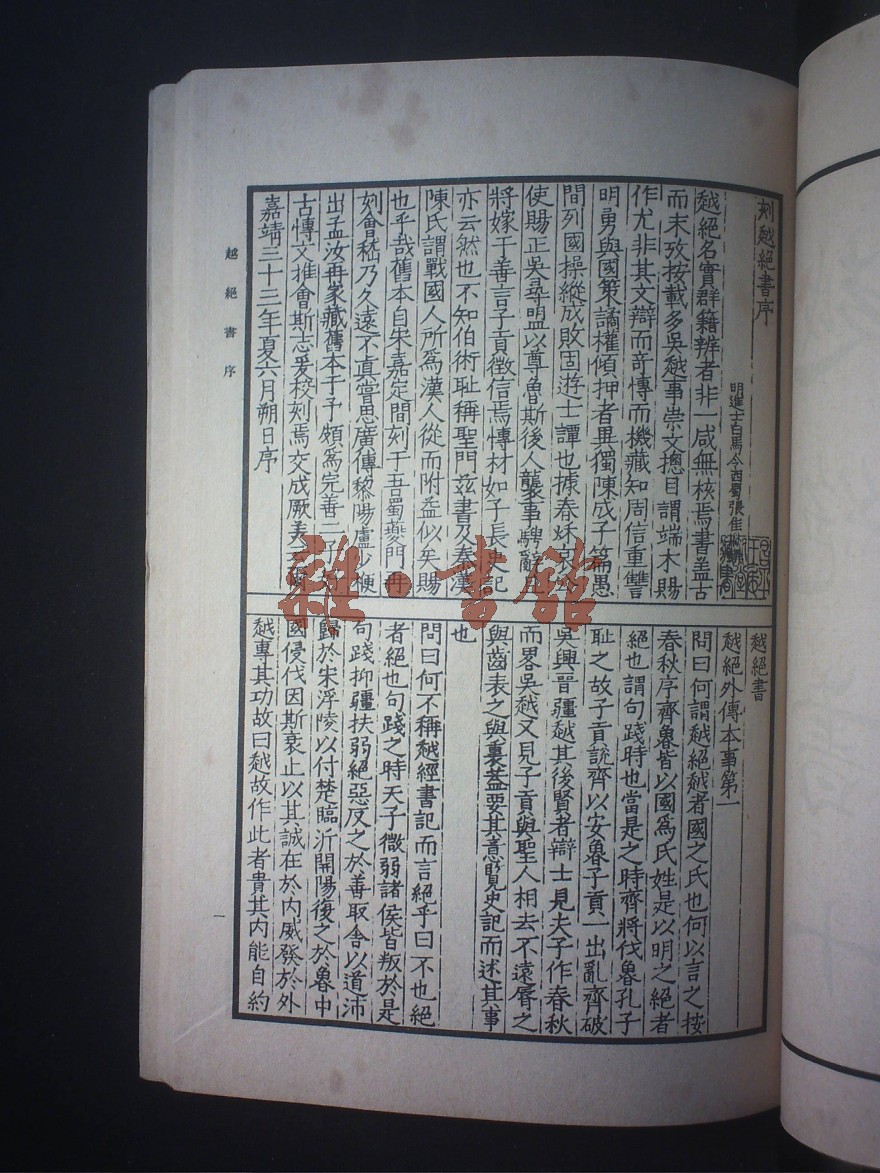 刻越絕書序
明進士白馬令西蜀張佳
越絕名實群籍辨者非一咸無核焉書盖古
而末攷按載多吳越事崇文摠目謂端木賜
作尤非其文辯而奇愽而機藏知周信重讐
明勇與國策譎權傾押者異獨陳成子一篇愚
間列國操縱成敗固遊士譚也據春秋哀公
使賜正吳尋盟以尊魯斯後人襲事騁辭
將嫁于善言子貢徵信焉愽材如子長史記
亦云然也不知伯術恥稱聖門兹書乃秦漢
陳氏謂戰國人所爲漢人從而附益似矣賜
也乎哉舊本自宋嘉定間刻于吾蜀夔門再
刻會嵇乃久遠不真嘗思廣傳黎陽盧少楩
出孟汝再家藏舊本于予頗爲完善二子
古愽文推會斯志爰校刻焉交成厥美云爾
嘉靖三十三年夏六月朔日序
越絕書
越絕外傳本事第一
問曰何謂越絕越者國之氏也何以言之按
春秋序齊魯皆以國爲氏姓是以明之絕者
絕也謂句踐時也當是之時齊將伐魯孔子
恥之故子貢說齊以安魯子貢一出亂齊破
吳興晉彊越其後賢者辯士見夫子作春秋
而畧吳越又見子貢與聖人相去不遠脣之
與齒表之與裏葢要其意覽史記而述其事
也
問曰何不稱越經書記而言絕乎曰不也絕
者絕也句踐之時天子微弱諸侯皆叛於是
句踐抑彊扶弱絕惡反之於善取舍以道沛
歸於宋浮陵以付楚臨沂開陽復之於魯中
國侵伐因斯衰止以其誠在於內威發於外
越專其功故曰越故作此者貴其內能自約
越絕書 序
一
雜·書館